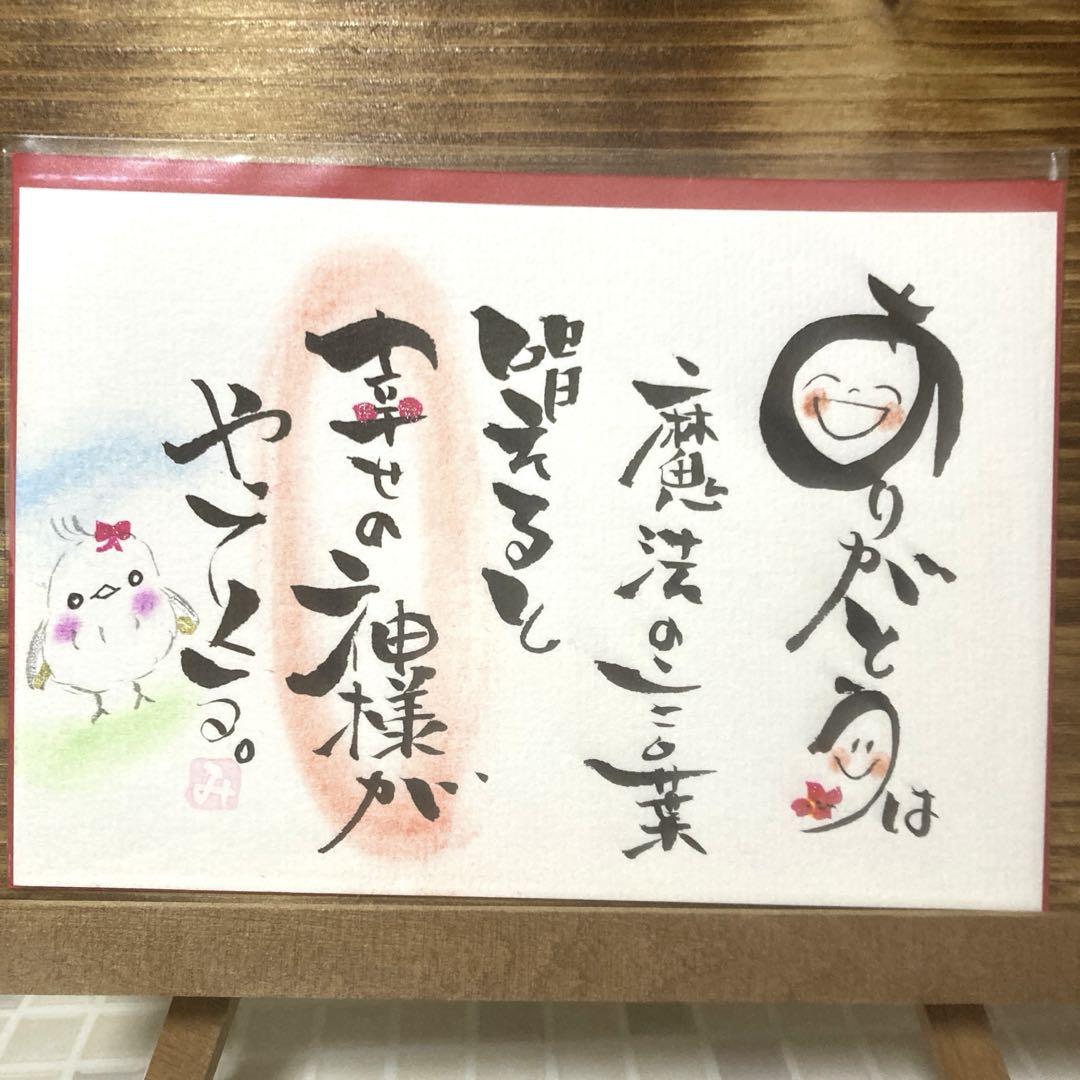 ありがとうは
魔法の言葉
唱えると
幸せの神様が
やってくる。
み